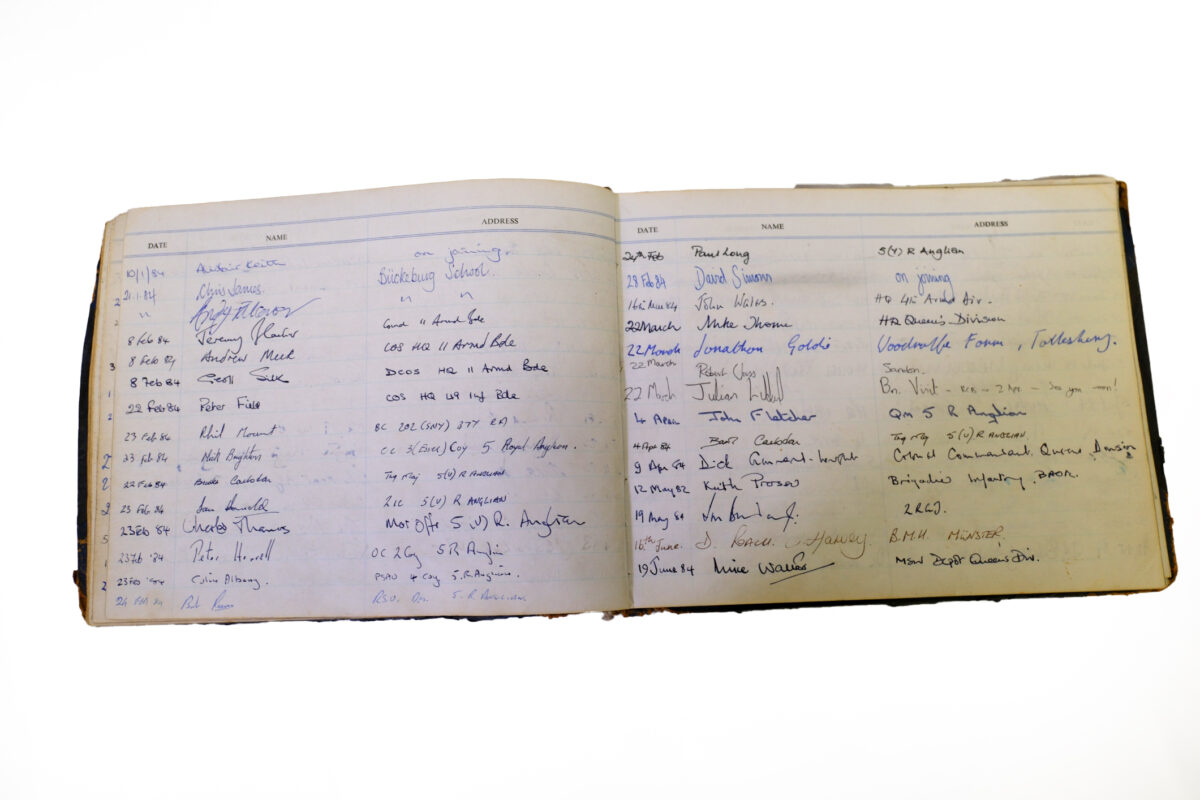 DATE NAME ADDRESS
10/1/84 Alistair Keith on joining.
21.1.84 Chris James. Bückeburg School.
" " "
8 Feb 84 Jeremy Comd 11 Armd Bde
8 Feb 84 Andrew Meek COS HQ 11 Armd Bde
8 Feb 84 Geoff Silk DCOS HQ 11 Armd Bde
22 Feb 84 Peter Field COS HQ 49 Inf Bde
23 Feb 84 Phil Mount BC 202 (SNY)
23 Feb 84 Brighton OC 5 (Essex) Coy 5 Royal Anglian.
22 Feb 84 Trg Maj 5(V) R ANGLIAN
23 Feb 84 Ian 2IC 5(V) R ANGLIAN
23 Feb 84 Thomas Mot Offr 5(V) R. Anglian
23 Feb '84 Peter Horrell OC 2 Coy 5 R Anglian
23 Feb '84 Colin PSAO 4 Coy 5. R. Anglian.
24 Feb 84 5. R. ANGLIAN
DATE NAME ADDRESS
24th Feb Paul Long 5(V) R Anglian
28 Feb 84 David Simons on joining
16th Mar 84 John Wales. HQ 4th Armd Div.
22 March Mike Thorne HQ Queen's Division
22 March Jonathon Goldie Woodrolfe Farm, Tollesbury.
22 March Robert Sandon.
22 March Julian Bn. Visit - - 2 Apr - See you soon!
4 April John Fletcher QM 5 R Anglian
4 Apr 84 Trg Maj 5(V) R ANGLIAN
9 Apr 84 Dick Colonel Commandant Queens Division
12 May 82 Keith Prosser Brigadier Infantry, BAOR.
19 May 84 2 RGJ.
16th June. D. HARVEY B.M.H. MÜNSTER.
19 June 84 Mike Walker Depot Queens Div.